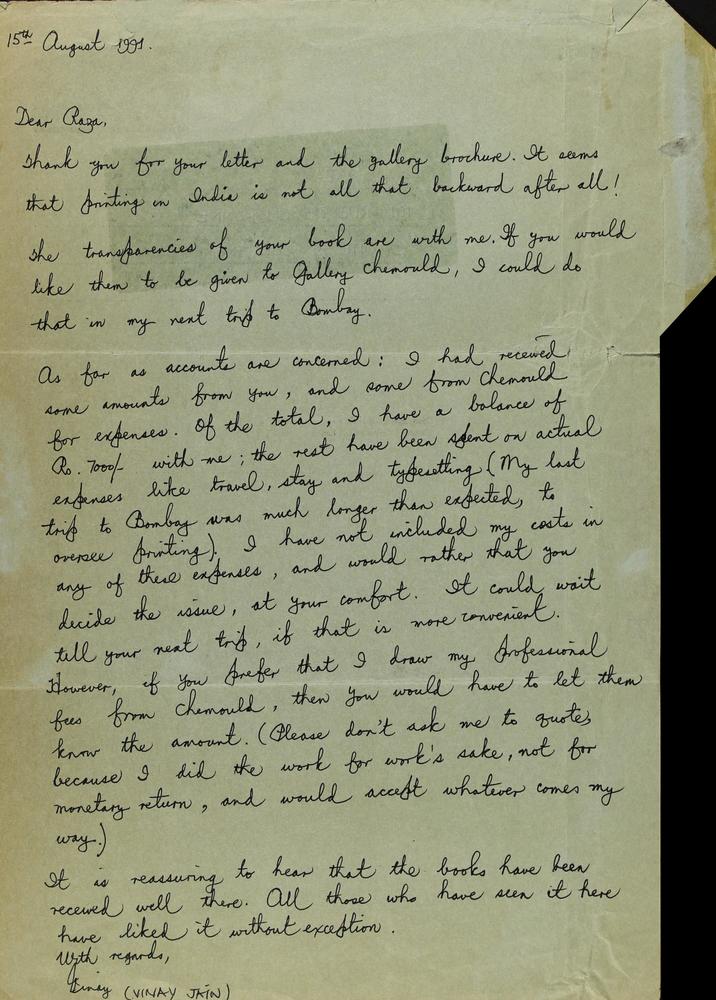 15th August 1991.
Dear Raza,
Thank you for your letter and the gallery brochure. It seems
that printing in India is not all that backward after all!
The transparencies of your book are with me. If you would
like them to be given to Gallery Chemould, I could do
that in my next trip to Bombay.
As far as accounts are concerned: I had received
some amounts from you, and some from Chemould
for expenses. Of the total, I have a balance of
Rs. 7000/- with me; the rest have been spent on actual
expenses like travel, stay and typesetting (My last
trip to Bombay was much longer than expected, to
oversee printing). I have not included my costs in
any of these expenses, and would rather that you
decide the issue, at your comfort. It could wait
till your next trip, if that is more convenient.
However, if you prefer that I draw my professional
fees from Chemould, then you would have to let them
know the amount. (Please don't ask me to quote,
because I did the work for work's sake, not for
monetary return, and would accept whatever comes my
way.)
It is reassuring to hear that the books have been
received well there. All those who have seen it here
have liked it without exception.
With regards,
Vinay (VINAY JAIN)